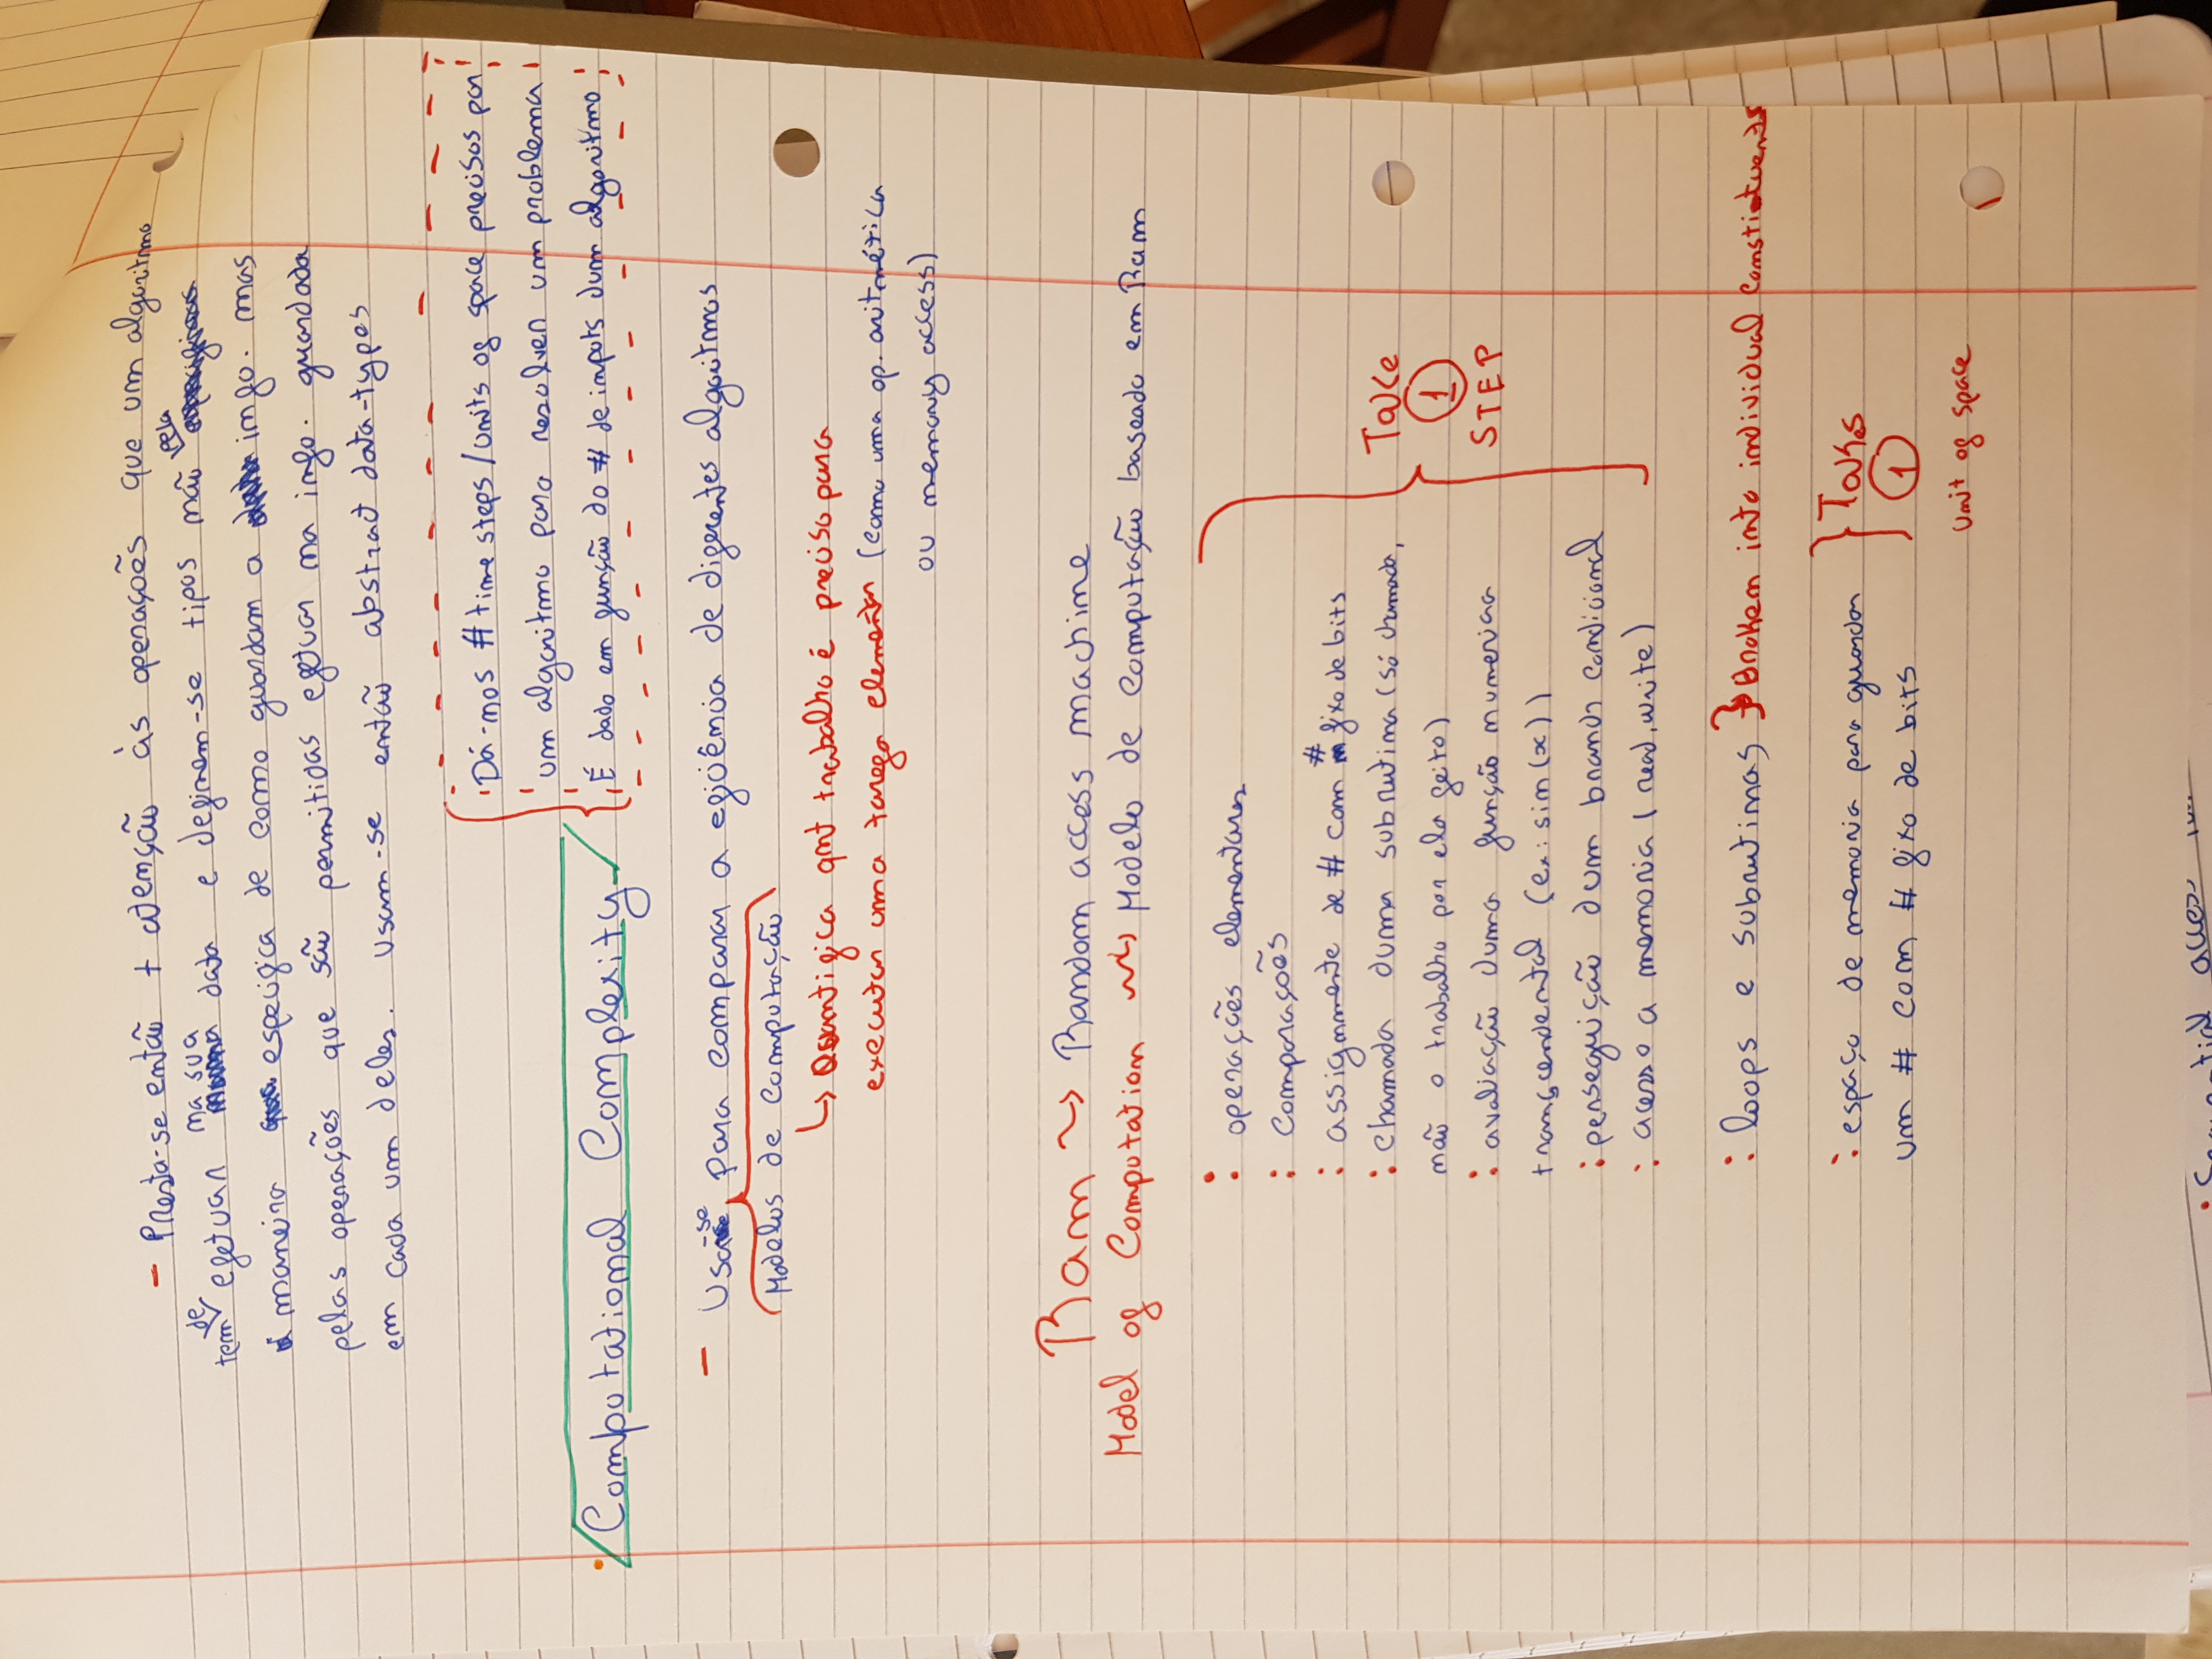 - Presta-se então + atenção às operações que um algoritmo
tem de efetuar na sua data e definem-se tipos não pela
maneira especifica de como guardam a info. mas
pelas operações que são permitidas efetuar na info. guardada
em cada um deles. Usam-se então abstract data-types
Dá-nos # time steps/units of space precisos por
um algoritmo para resolver um problema
É dado em função do # de inputs dum algoritmo
Computational Complexity
- Usa-se para comparar a eficiência de diferentes algoritmos
Modelos de Computação
↳ Quantifica qnt trabalho é preciso para
executar uma tarefa elementar (como uma op. aritmética
ou memory access)
Ram ⤳ Random access machine
Model of Computation ⤳ Modelo de computação baseado em Ram
: operações elementares
: Comparações
: assignmente de # com # fixo de bits
: chamada duma subrutina (só chamada,
não o trabalho por ela feito)
: avaliação duma função numerica
transcendental (ex: sin(x))
: perseguição dum branch condicional
: acesso a memoria (read, write)
Take
1
STEP
: loops e subrutinas } Broken into individual constituents
: espaço de memoria para guardar
um # com # fixo de bits
Takes
1
unit of space
: Sequential access